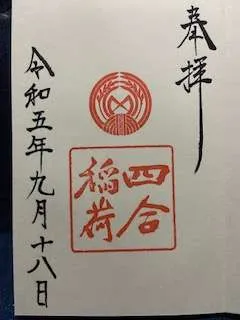 奉拝
四合
稲荷
令和五年九月十八日